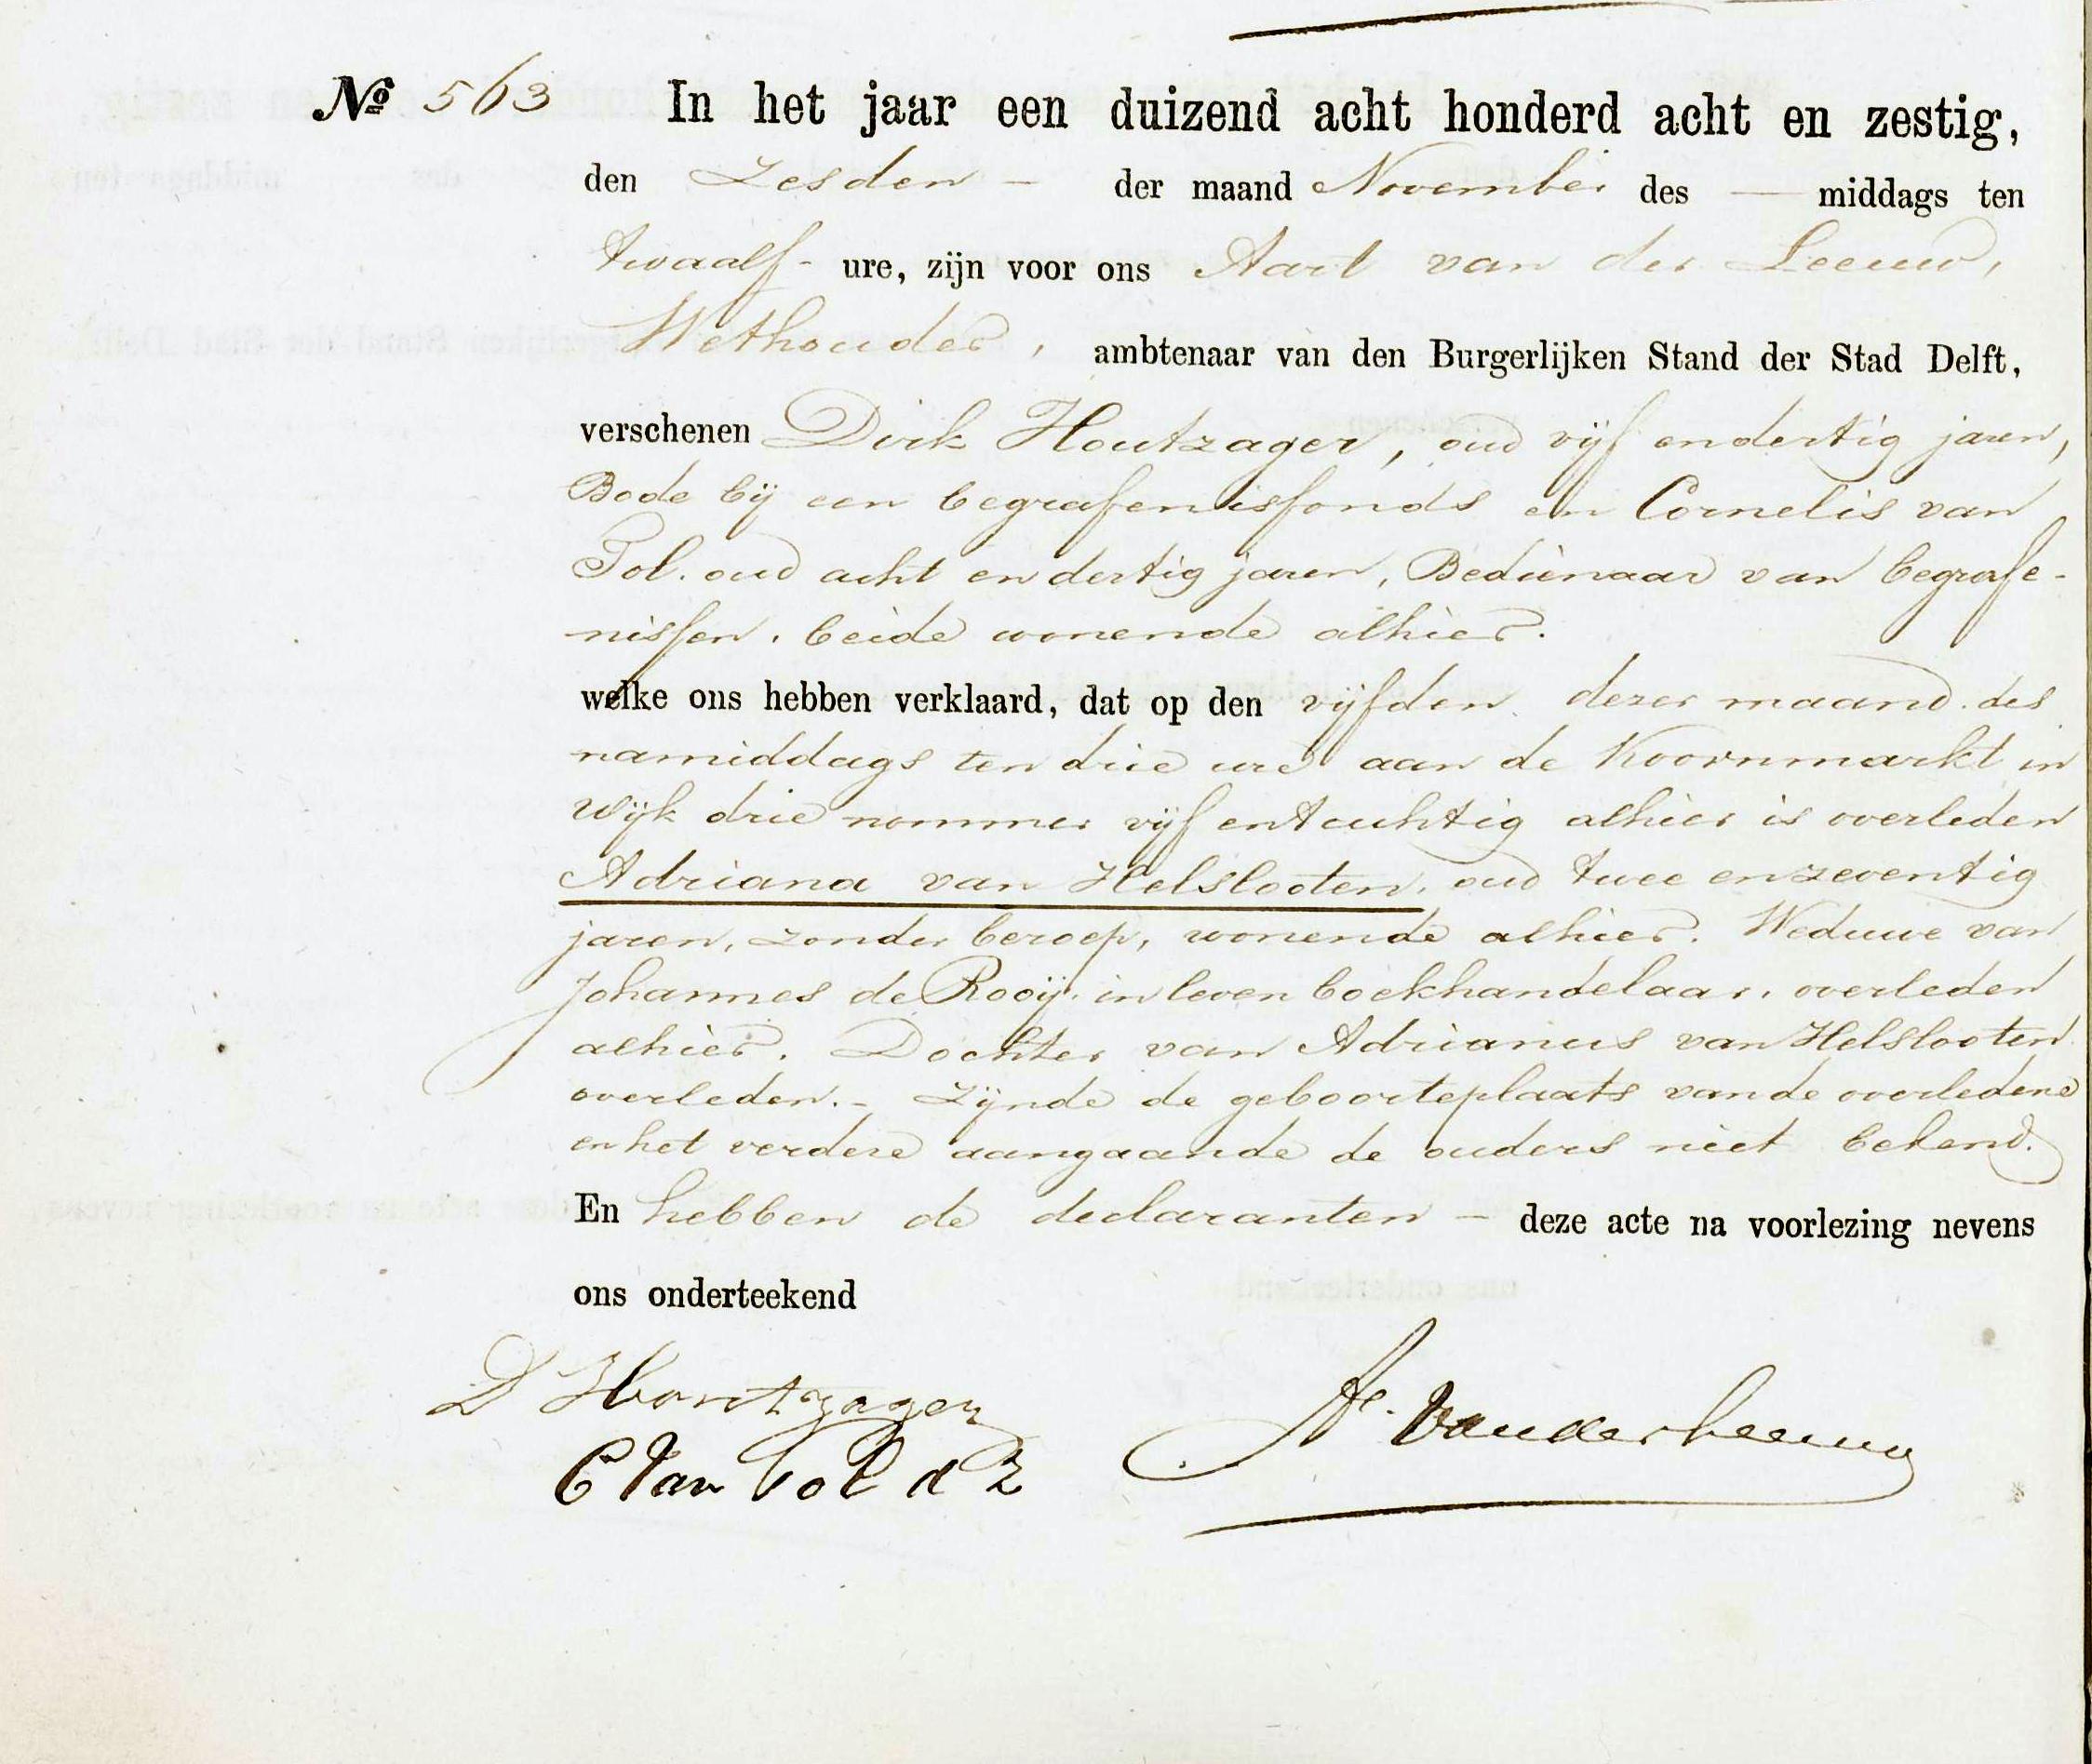 № 563 In het jaar een duizend acht honderd acht en zestig,
den Zesden - der maand November des — middags ten
twaalf - ure, zijn voor ons Aart van der Leeuw,
Wethouder, ambtenaar van den Burgerlijken Stand der Stad Delft,
verschenen Dirk Houtzager, oud vijf en dertig jaren,
Bode bij een begrafenisfonds en Cornelis van
Tol. oud acht en dertig jaren, Bedienaar van begrafe-
nissen. beide wonende alhier.
welke ons hebben verklaard, dat op den vijfden dezer maand. des
namiddags ten drie ure aan de Koornmarkt in
Wijk drie nommer vijf en tachtig alhier is overleden
Adriana van Helslooten, oud twee en zeventig
jaren, zonder beroep, wonende alhier. Weduwe van
Johannes de Rooij. in leven boekhandelaar. overleden
alhier. Dochter van Adrianus van Helslooten
overleden. - Zijnde de geboorteplaats van de overledene
en het verdere aangaande de ouders niet bekend.
En hebben de declaranten - deze acte na voorlezing nevens
ons onderteekend
D Houtzager
C Van Tol d Z
A. van der Leeuw